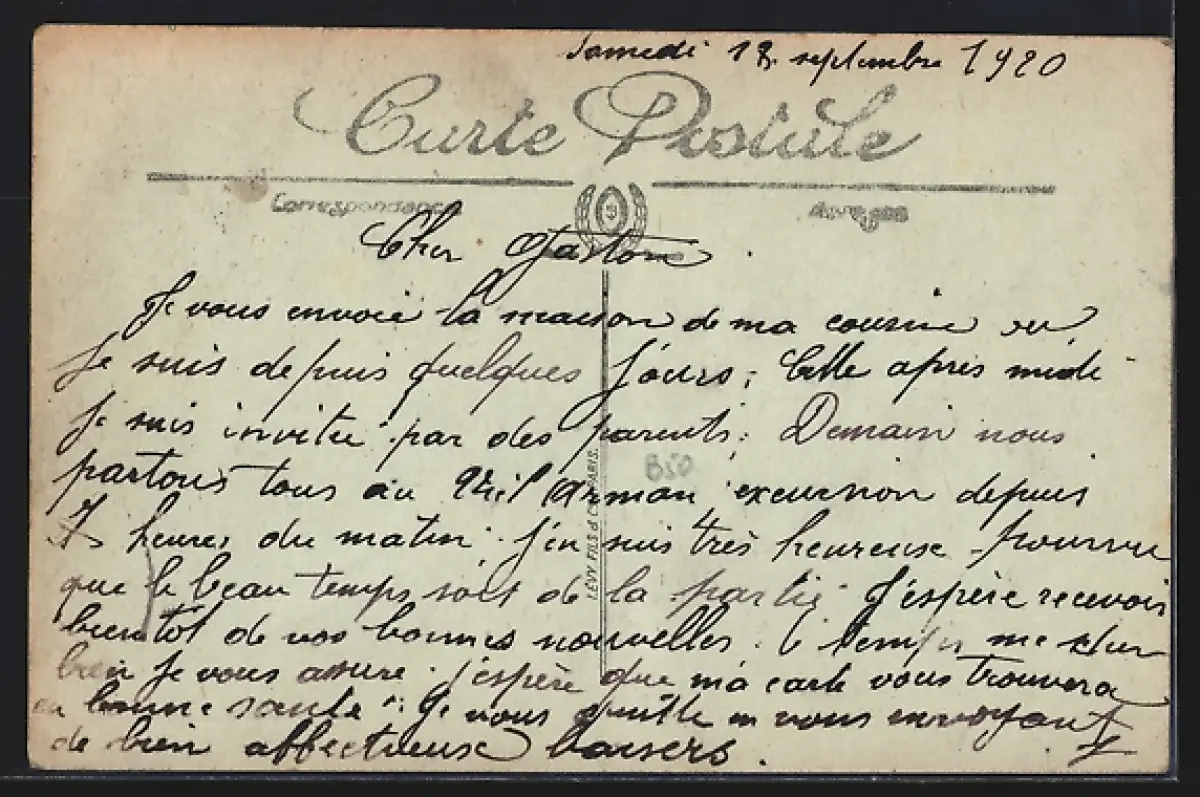 Samedi 18 septembre 1920
Carte Postale
Correspondance Adresse
Cher Gaston
Je vous envoie la maison de ma cousine ou
je suis depuis quelques jours; Cette après midi
je suis invitée par des parents; Demain nous
partons tous au Vieil Arman excursion depuis
heures du matin. J'en suis très heureuse pourvu
que le beau temps soit de la partie J'espère recevoir
bientôt de vos bonnes nouvelles. le temps me dur
bien je vous assure. j'espère que ma carte vous trouvera
en bonne santé. Je vous quitte en vous envoyant
de bien affectueuse baisers.
B50
LÉVY FILS & Cie PARIS.